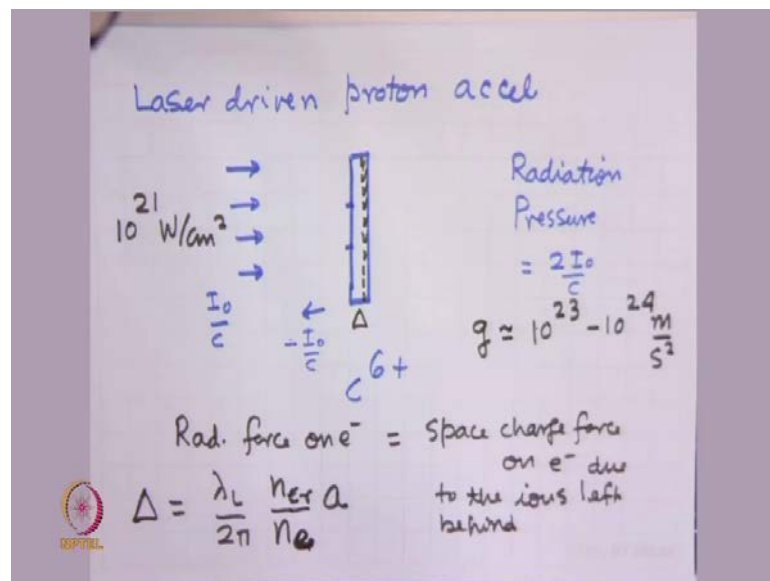 Laser driven proton accel
10^21 W/cm^2
I0/c
-I0/c
Δ
C^6+
Radiation
Pressure
= 2I0/c
g ≃ 10^23 - 10^24 m/s^2
Rad. force on e^- = space charge force
on e^- due
to the ions left
behind
Δ = λL/2π ncr/ne a
NPTEL